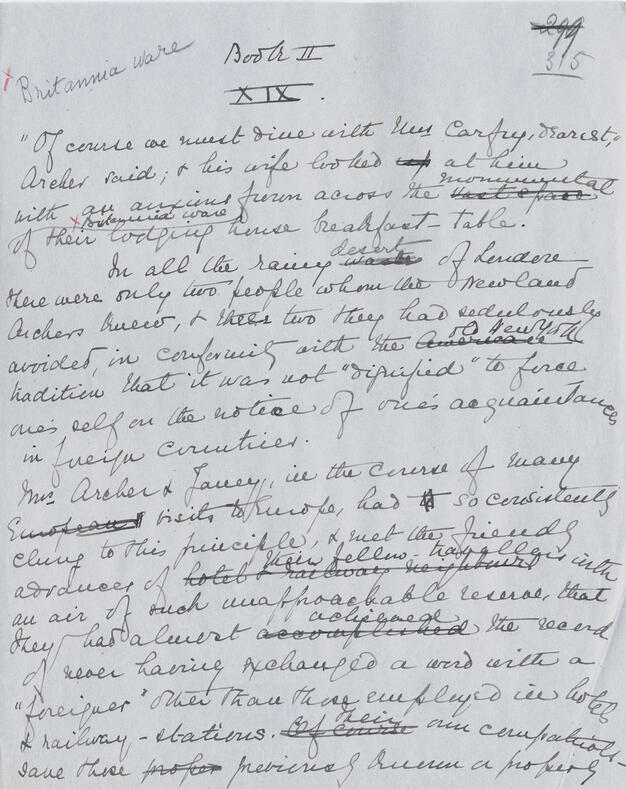 299
315
x Britannia Ware
Book II
XIX.
"Of course we must dine with Mrs Carfry, dearest,"
Archer said; & his wife looked up at him
with an anxious frown across the vast space monumental
x Britannia ware
of their lodging house breakfast-table.
In all the rainy waste desert of London
there were only two people whom the Newland
Archers knew, & these two they had sedulously
avoided, in conformity with the American old New York
tradition that it was not "dignified" to force
one's self on the notice of one's acquaintances
in foreign countries.
Mrs. Archer & Janey, in the course of many
European visits to Europe, had so consistently
clung to this principle, & met the friendly
advances of hotel & railway neighbours their fellow-travellers with
an air of such unapproachable reserve, that
they had almost accomplished achieved the record
of never having exchanged a word with a
"foreigner" other than those employed in hotels
& railway-stations. Of course Their own compatriots—
save those proper previously known or properly